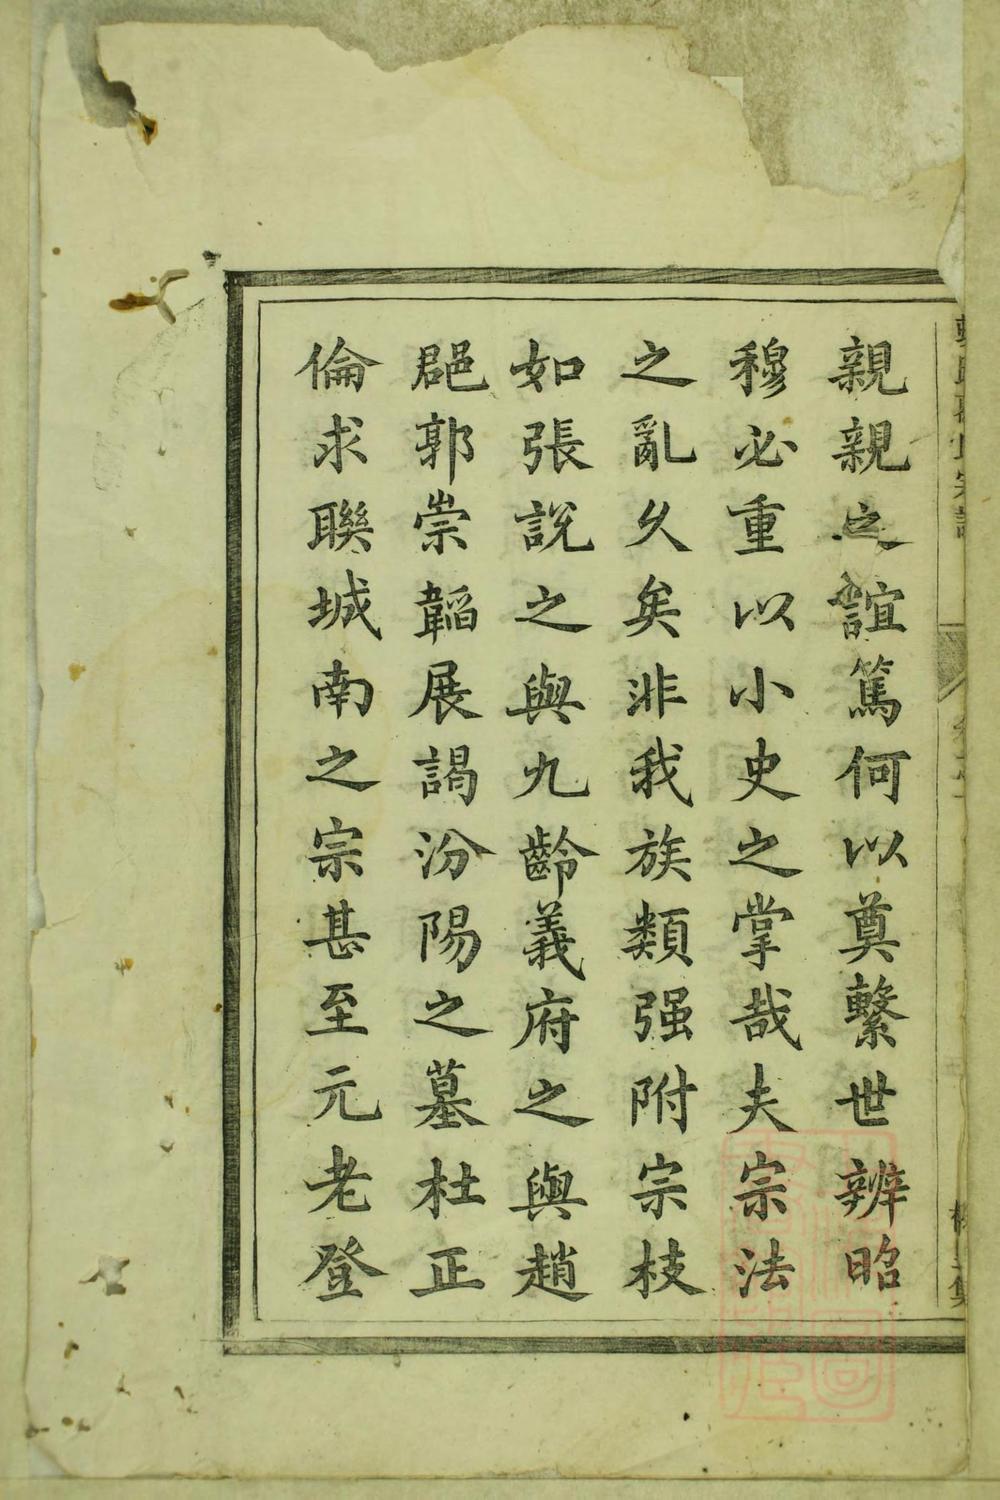 親親之誼篤何以奠繫世辨昭
穆必重以小史之掌哉夫宗法
之亂久矣非我族類强附宗枝
如張説之與九齡義府之與趙
郒郭崇韜展謁汾陽之墓杜正
倫求聯城南之宗甚至元老登